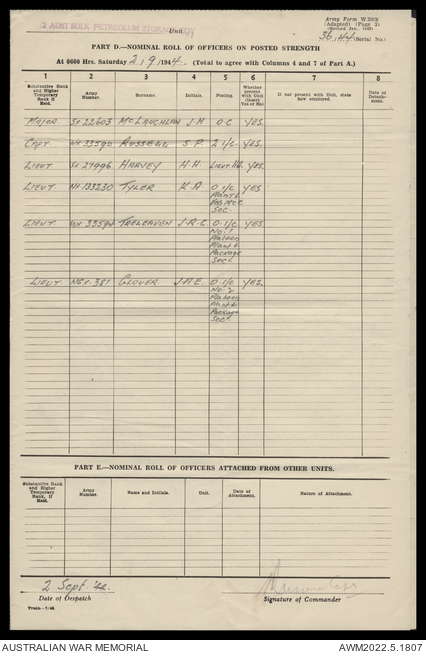 2 AUST BULK PETROLEUM STORAGE COY
Unit
Army Form W 3009
(Adapted) (Page 2)
36/44 (Serial No.)
PART D.—NOMINAL ROLL OF OFFICERS ON POSTED STRENGTH
At 0600 Hrs. Saturday 2/9/1944. (Total to agree with Columns 4 and 7 of Part A.)
1 2 3 4 5 6 7 8
Substantive Rank and Higher Temporary Rank, if Held. Army Number. Surname. Initials. Posting. Whether present with Unit (Insert Yes or No) If not present with Unit, state how employed. Date of Detachment.
MAJOR SX 22603 McLAUGHLAN J.H O C YES.
CAPT VX 33590 RUSSELL S.P. 2 i/c. YES.
LIEUT SX 27996 HARVEY H.H. LIEUT HQ. YES.
LIEUT NX 133230 TYLER K.A O i/c YES
Plant &
Sec.
LIEUT 33594 TRELEAVEN J.R.C. O. i/c YES.
No. 1
Platoon
Plant &
Package
Sect
LIEUT NGX. 381 GLOVER J.M.E. O i/c YES.
No. 2
Platoon
Plant &
Package
Sect
PART E.—NOMINAL ROLL OF OFFICERS ATTACHED FROM OTHER UNITS.
Substantive Rank and Higher Temporary Rank, if Held. Army Number. Name and Initials. Unit. Date of Attachment. Nature of Attachment.
2 Sept '44.
Date of Despatch Signature of Commander
AUSTRALIAN WAR MEMORIAL AWM2022.5.1807